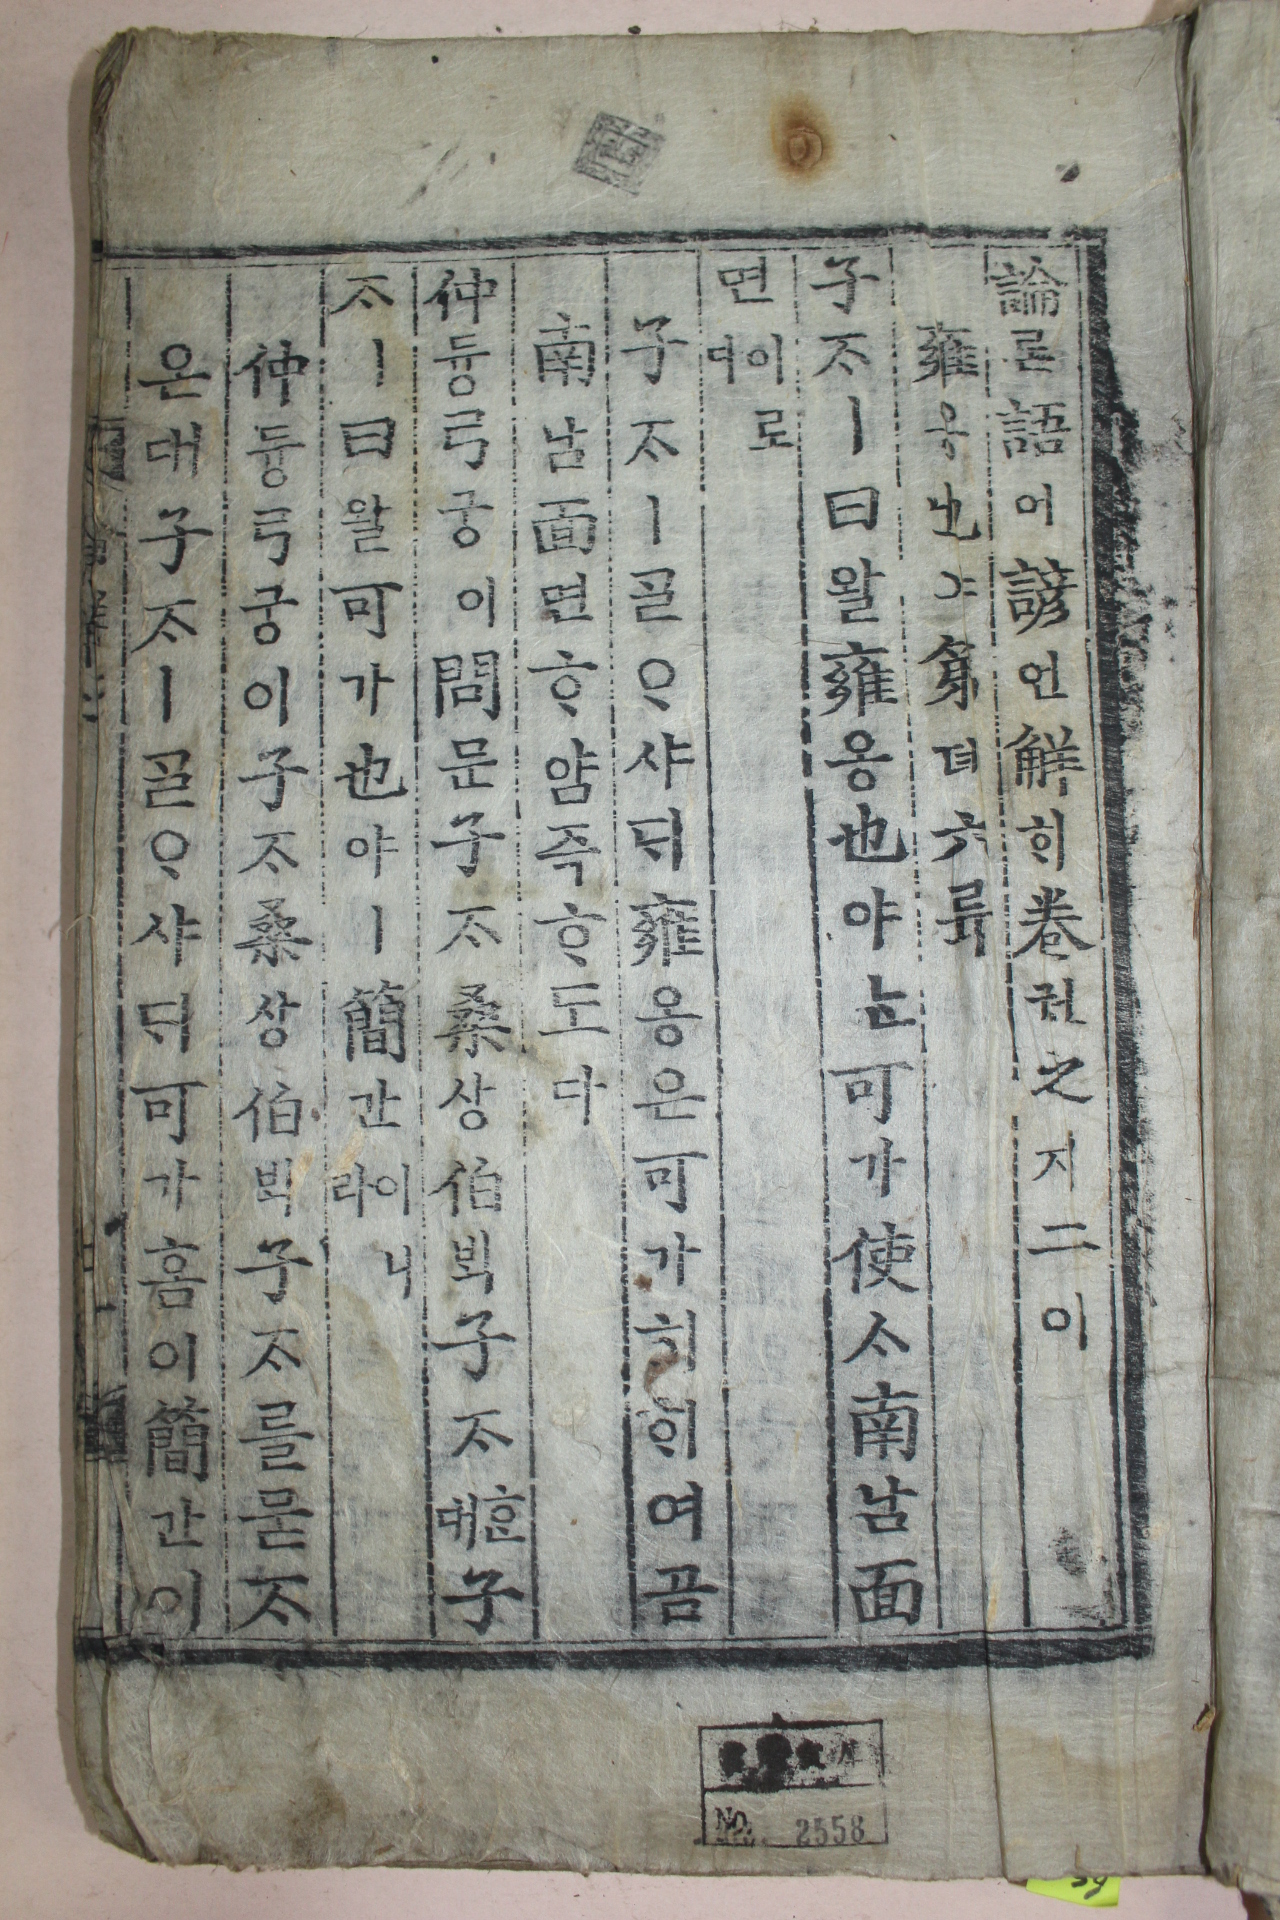 論론語어諺언解ᄒᆡ卷권之지二이
雍옹也야第뎨六륙
子ᄌᆞㅣ曰왈雍옹也야ᄂᆞᆫ可가使ᄉᆞ南남面
면이로다
子ᄌᆞㅣᄀᆞᆯᄋᆞ샤ᄃᆡ雍옹은可가히ᄒᆞ여곰
南남面면ᄒᆞ얌즉ᄒᆞ도다
仲듕弓궁이問문子ᄌᆞ桑상伯ᄇᆡᆨ子ᄌᆞᄒᆞᆫ대子
ᄌᆞㅣ曰왈可가也야ㅣ簡간이니라
仲듕弓궁이子ᄌᆞ桑상伯ᄇᆡᆨ子ᄌᆞ를묻ᄌᆞ
온대子ᄌᆞㅣᄀᆞᆯᄋᆞ샤ᄃᆡ可가홈이簡간이
NO. 2558